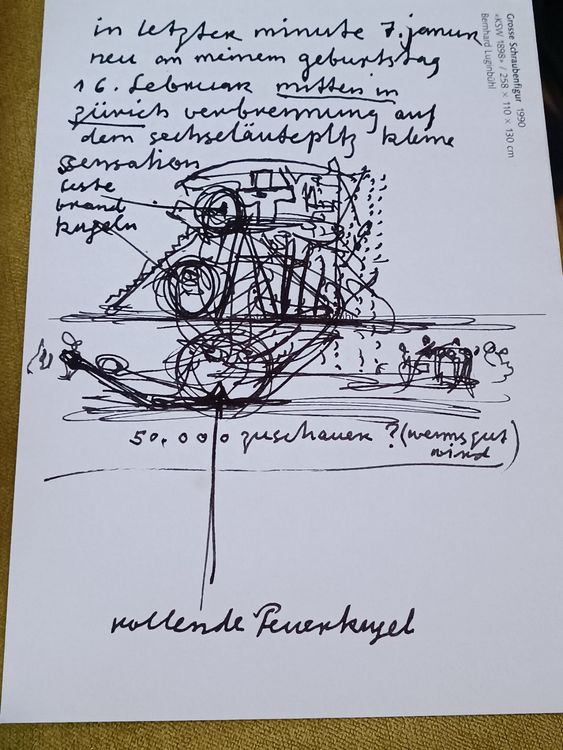 in letzter minute 7. januar
neu an meinem geburtstag
16. februar mitten in
zürich verbrennung auf
dem sechseläutepltz kleine
sensation
brand
kugeln
50.000 zuschauer ? (wenns gut
wird)
rollende Feuerkugel
Grosse Schraubenfigur 1990
«KSW 1898» / 258 × 110 × 130 cm
Bernhard Luginbühl